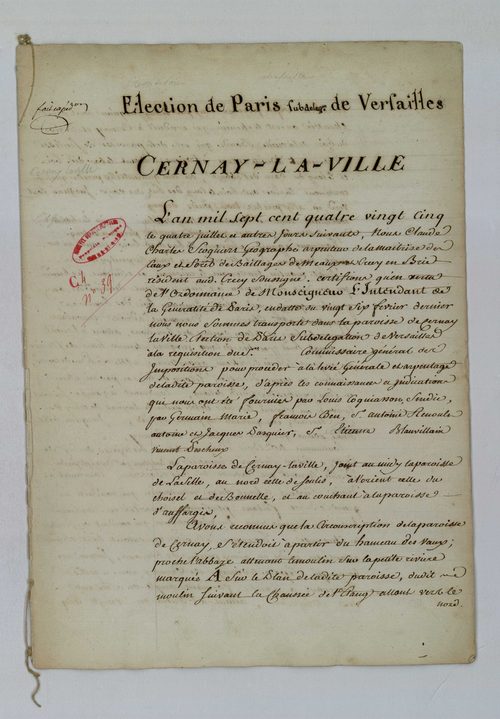 Election de Paris Subdeleg.on de Versailles
CERNAY-LA-VILLE
L'an mil Sept cent quatre vingt cinq
le quatre juillet et autres jours suivants, Nous Claude
Charles Géographe arpenteur de la maitrise des
Eaux et forêts de Baillages de Meaux et Crecy en Brie
résident aud. Crecy Soussigné, certifions qu'en vertu
de l'Ordonnance de Monseigneur L'Intendant de
la Generalité de Paris, en datte du vingt Six fevrier dernier
nous nous Sommes transporté dans la paroisse de Cernay
la Ville Election de Paris Subdelegation de Versailles
à la requisition du S.r Commissaire général des
Impositions pour proceder à la levée Generale et arpentage
de ladite paroisse, d'après les connaissances et indications
qui nous ont été fournies par Louis Coquiasson, Sindic,
par Germain Marie, francois Cheu, S.r antoine
antoine et Jacques Pasquier, S.r Etienne Blauvillain
vincent
La paroisse de Cernay-la-ville, joint au midy la paroisse
de La Selle, au nord celle de Senlis, à l'orient celle du
choisel et de Bonnelle, et au couchant à la paroisse
d'auffargis.
Avons reconnus que la Circonscription de la paroisse
de Cernay, S'étendoit à partir du hameau des Vaux;
proche l'abbaye attenant le moulin Sur la petite riviere
marqués A Sur le Plan de ladite paroisse, dudit
moulin Suivant la Chaussée de l'Etang allant vers le
nord.
C 4
n° 39.